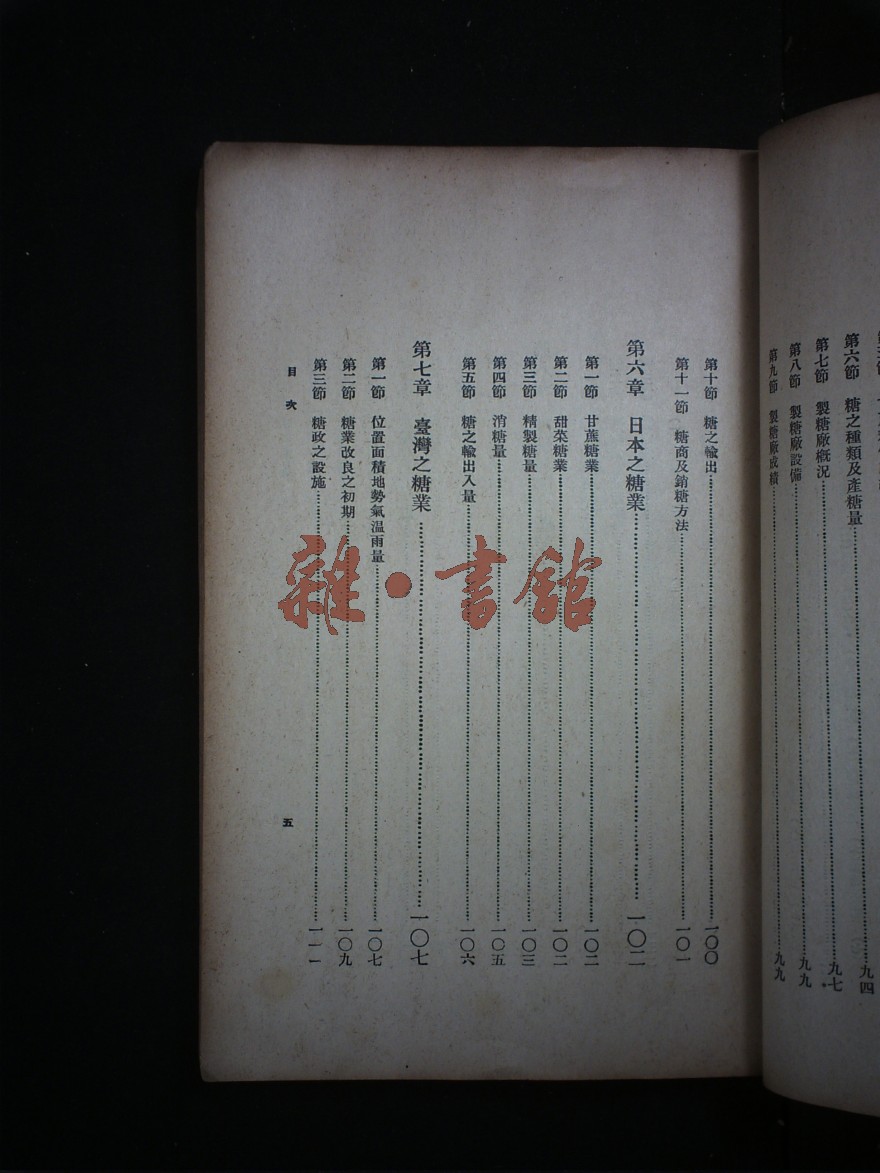 第六節　糖之種類及產糖量……九四
第七節　製糖廠概況……九七
第八節　製糖廠設備……九九
第九節　製糖廠成績……九九
第十節　糖之輸出……一〇〇
第十一節　糖商及銷糖方法……一〇一
第六章　日本之糖業……一〇二
第一節　甘蔗糖業……一〇二
第二節　甜菜糖業……一〇二
第三節　精製糖量……一〇三
第四節　消糖量……一〇五
第五節　糖之輸出入量……一〇六
第七章　臺灣之糖業……一〇七
第一節　位置面積地勢氣温雨量……一〇七
第二節　糖業改良之初期……一〇九
第三節　糖政之設施……一一一
目次
五
雜・書館